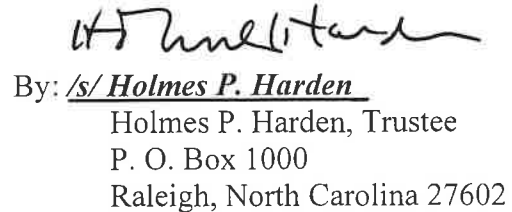 Holmes Harden
By: /s/ Holmes P. Harden
Holmes P. Harden, Trustee
P. O. Box 1000
Raleigh, North Carolina 27602